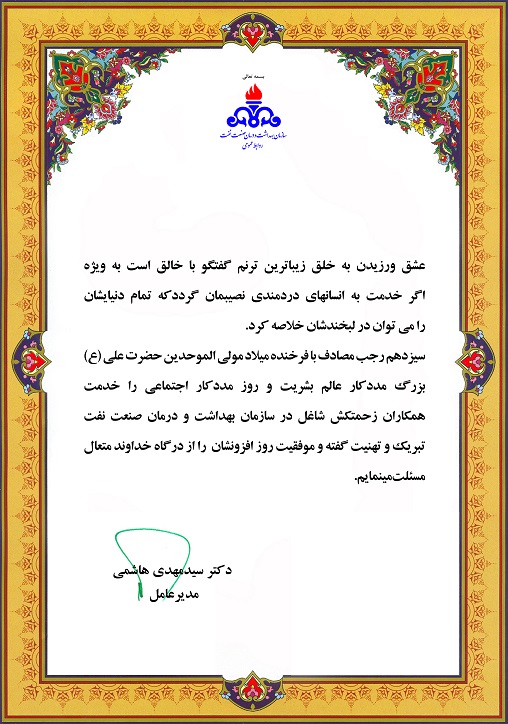 بسمه تعالی
سازمان بهداشت و درمان صنعت نفت
روابط عمومی
عشق ورزیدن به خلق زیباترین ترنم گفتگو با خالق است به ویژه
اگر خدمت به انسانهای دردمندی نصیبمان گرددکه تمام دنیایشان
را می توان در لبخندشان خلاصه کرد.
سیزدهم رجب مصادف با فرخنده میلاد مولی الموحدین حضرت علی (ع)
بزرگ مددکار عالم بشریت و روز مددکار اجتماعی را خدمت
همکاران زحمتکش شاغل در سازمان بهداشت و درمان صنعت نفت
تبریک و تهنیت گفته و موفقیت روز افزونشان را از درگاه خداوند متعال
مسئلت‌مینمایم.
دکتر سیدمهدی هاشمی
مدیرعامل